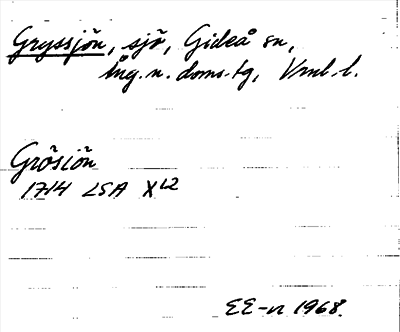 Gryssjön, sjö, Gideå sn,
Ång. n. doms.tg, Vrnl. l.
Grösiön
1714 LSA X12
EE-n 1968.